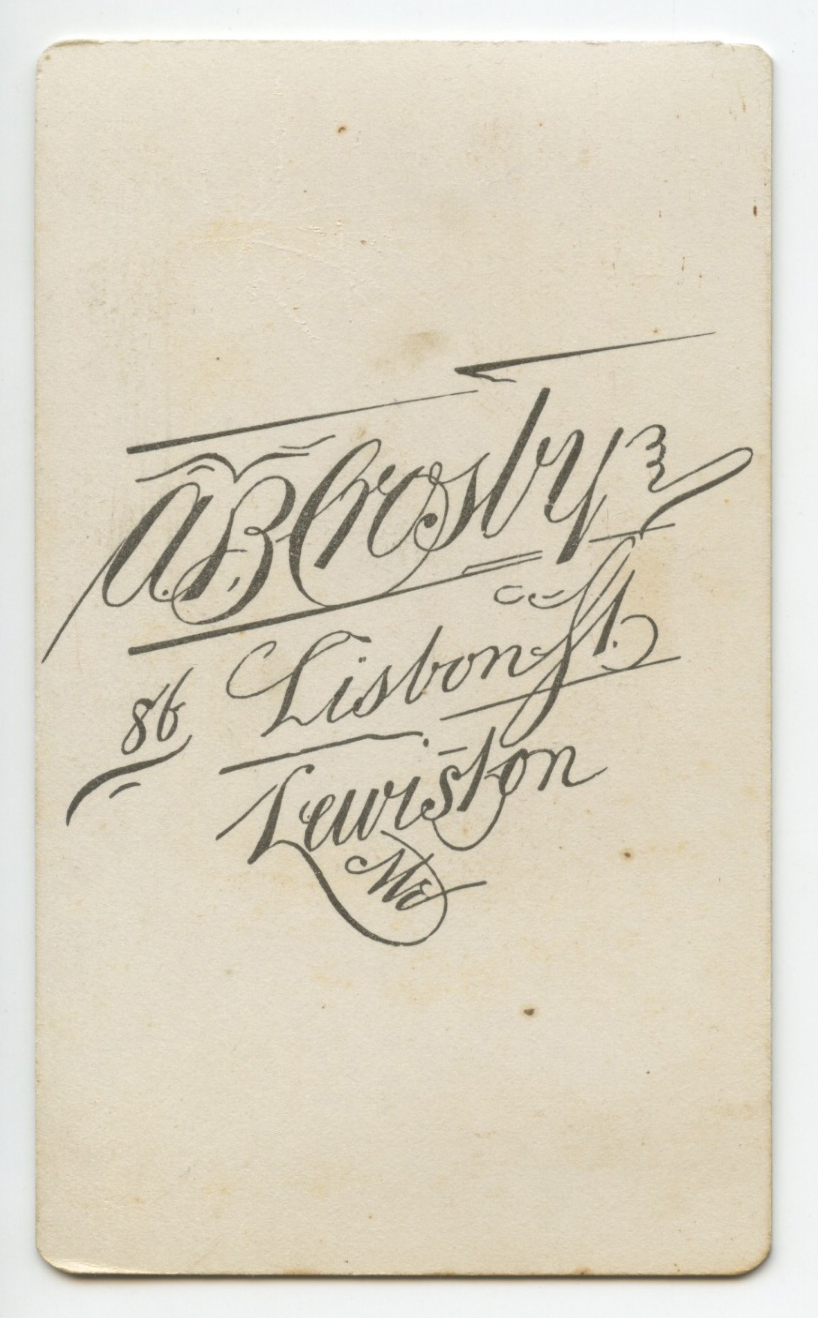 A.B. Crosby
86 Lisbon St.
Lewiston
Me